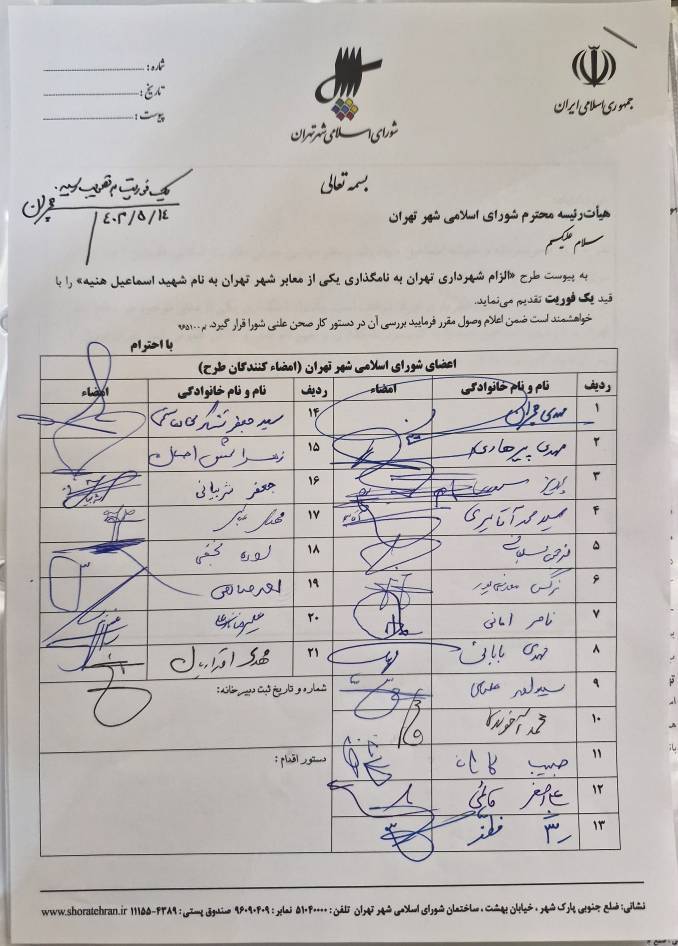 جمهوری اسلامی ایران
شورای اسلامی شهر تهران
شماره:
تاریخ:
پیوست:
بسمه تعالی
یک فوریت به تصویب رسید.
۱۴۰۳/۵/۱۴
هیأت‌رئیسه محترم شورای اسلامی شهر تهران
سلام علیکم
به پیوست طرح «الزام شهرداری تهران به نامگذاری یکی از معابر شهر تهران به نام شهید اسماعیل هنیه» را با
قید یک فوریت تقدیم می‌نماید.
خواهشمند است ضمن اعلام وصول مقرر فرمایید بررسی آن در دستور کار صحن علنی شورا قرار گیرد.
با احترام
اعضای شورای اسلامی شهر تهران (امضاء کنندگان طرح)
ردیف نام و نام خانوادگی امضاء ردیف نام و نام خانوادگی امضاء
۱ مهدی چمران ۱۴ سید جعفر تشکری هاشمی
۲ مهدی پیرهادی ۱۵ زهرا شمس احسان
۳ پرویز سروری ۱۶ جعفر شربیانی
۴ سید محمد آقامیری ۱۷ مهدی
۵ ۱۸ سوده نجفی
۶ نرگس معدنی‌پور ۱۹ احمد صادقی
۷ ناصر امانی ۲۰ علیرضا نادعلی
۸ مهدی بابائی ۲۱ مهدی اقراریان
۹ سید احمد علوی
۱۰ محمد آخوندی
۱۱ حبیب کاشانی
۱۲ علی اصغر قائمی
۱۳
شماره و تاریخ ثبت دبیرخانه:
دستور اقدام:
نشانی: ضلع جنوبی پارک شهر، خیابان بهشت، ساختمان شورای اسلامی شهر تهران تلفن: ۵۱۰۴۰۰۰۰ نمابر: ۹۶۰۹۰۴۰۹ صندوق پستی: ۴۳۸۹-۱۱۱۵۵ www.shoratehran.ir